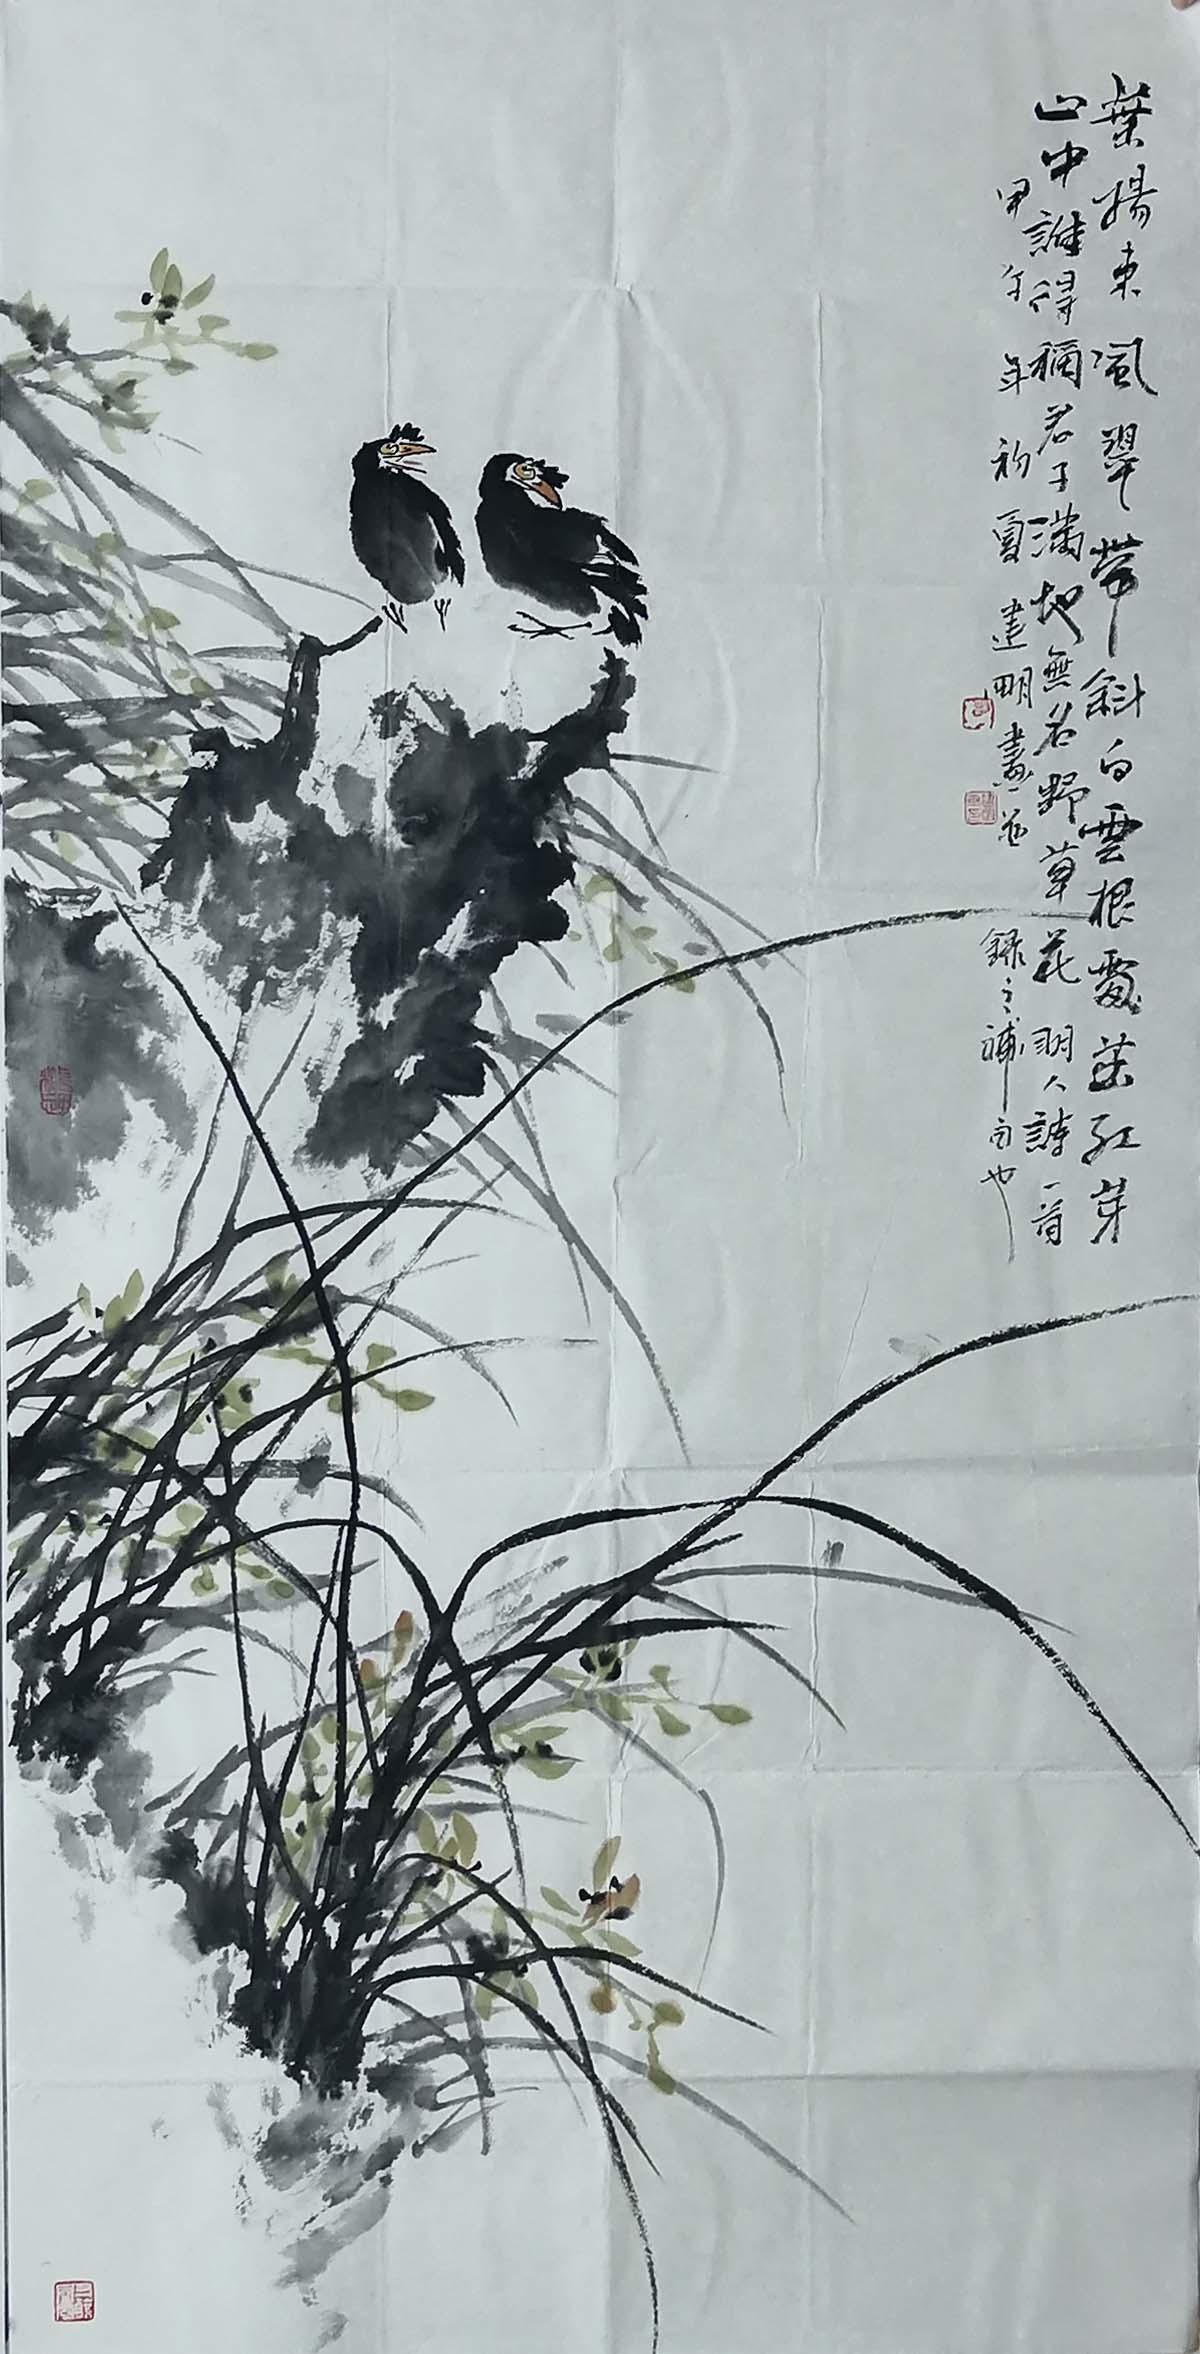 葉揚東風翠帶斜白雲根處茁紅芽
山中誰得稱君子滿地無名野草花 明人詩一首
甲午年初夏建明畫並錄之補白也